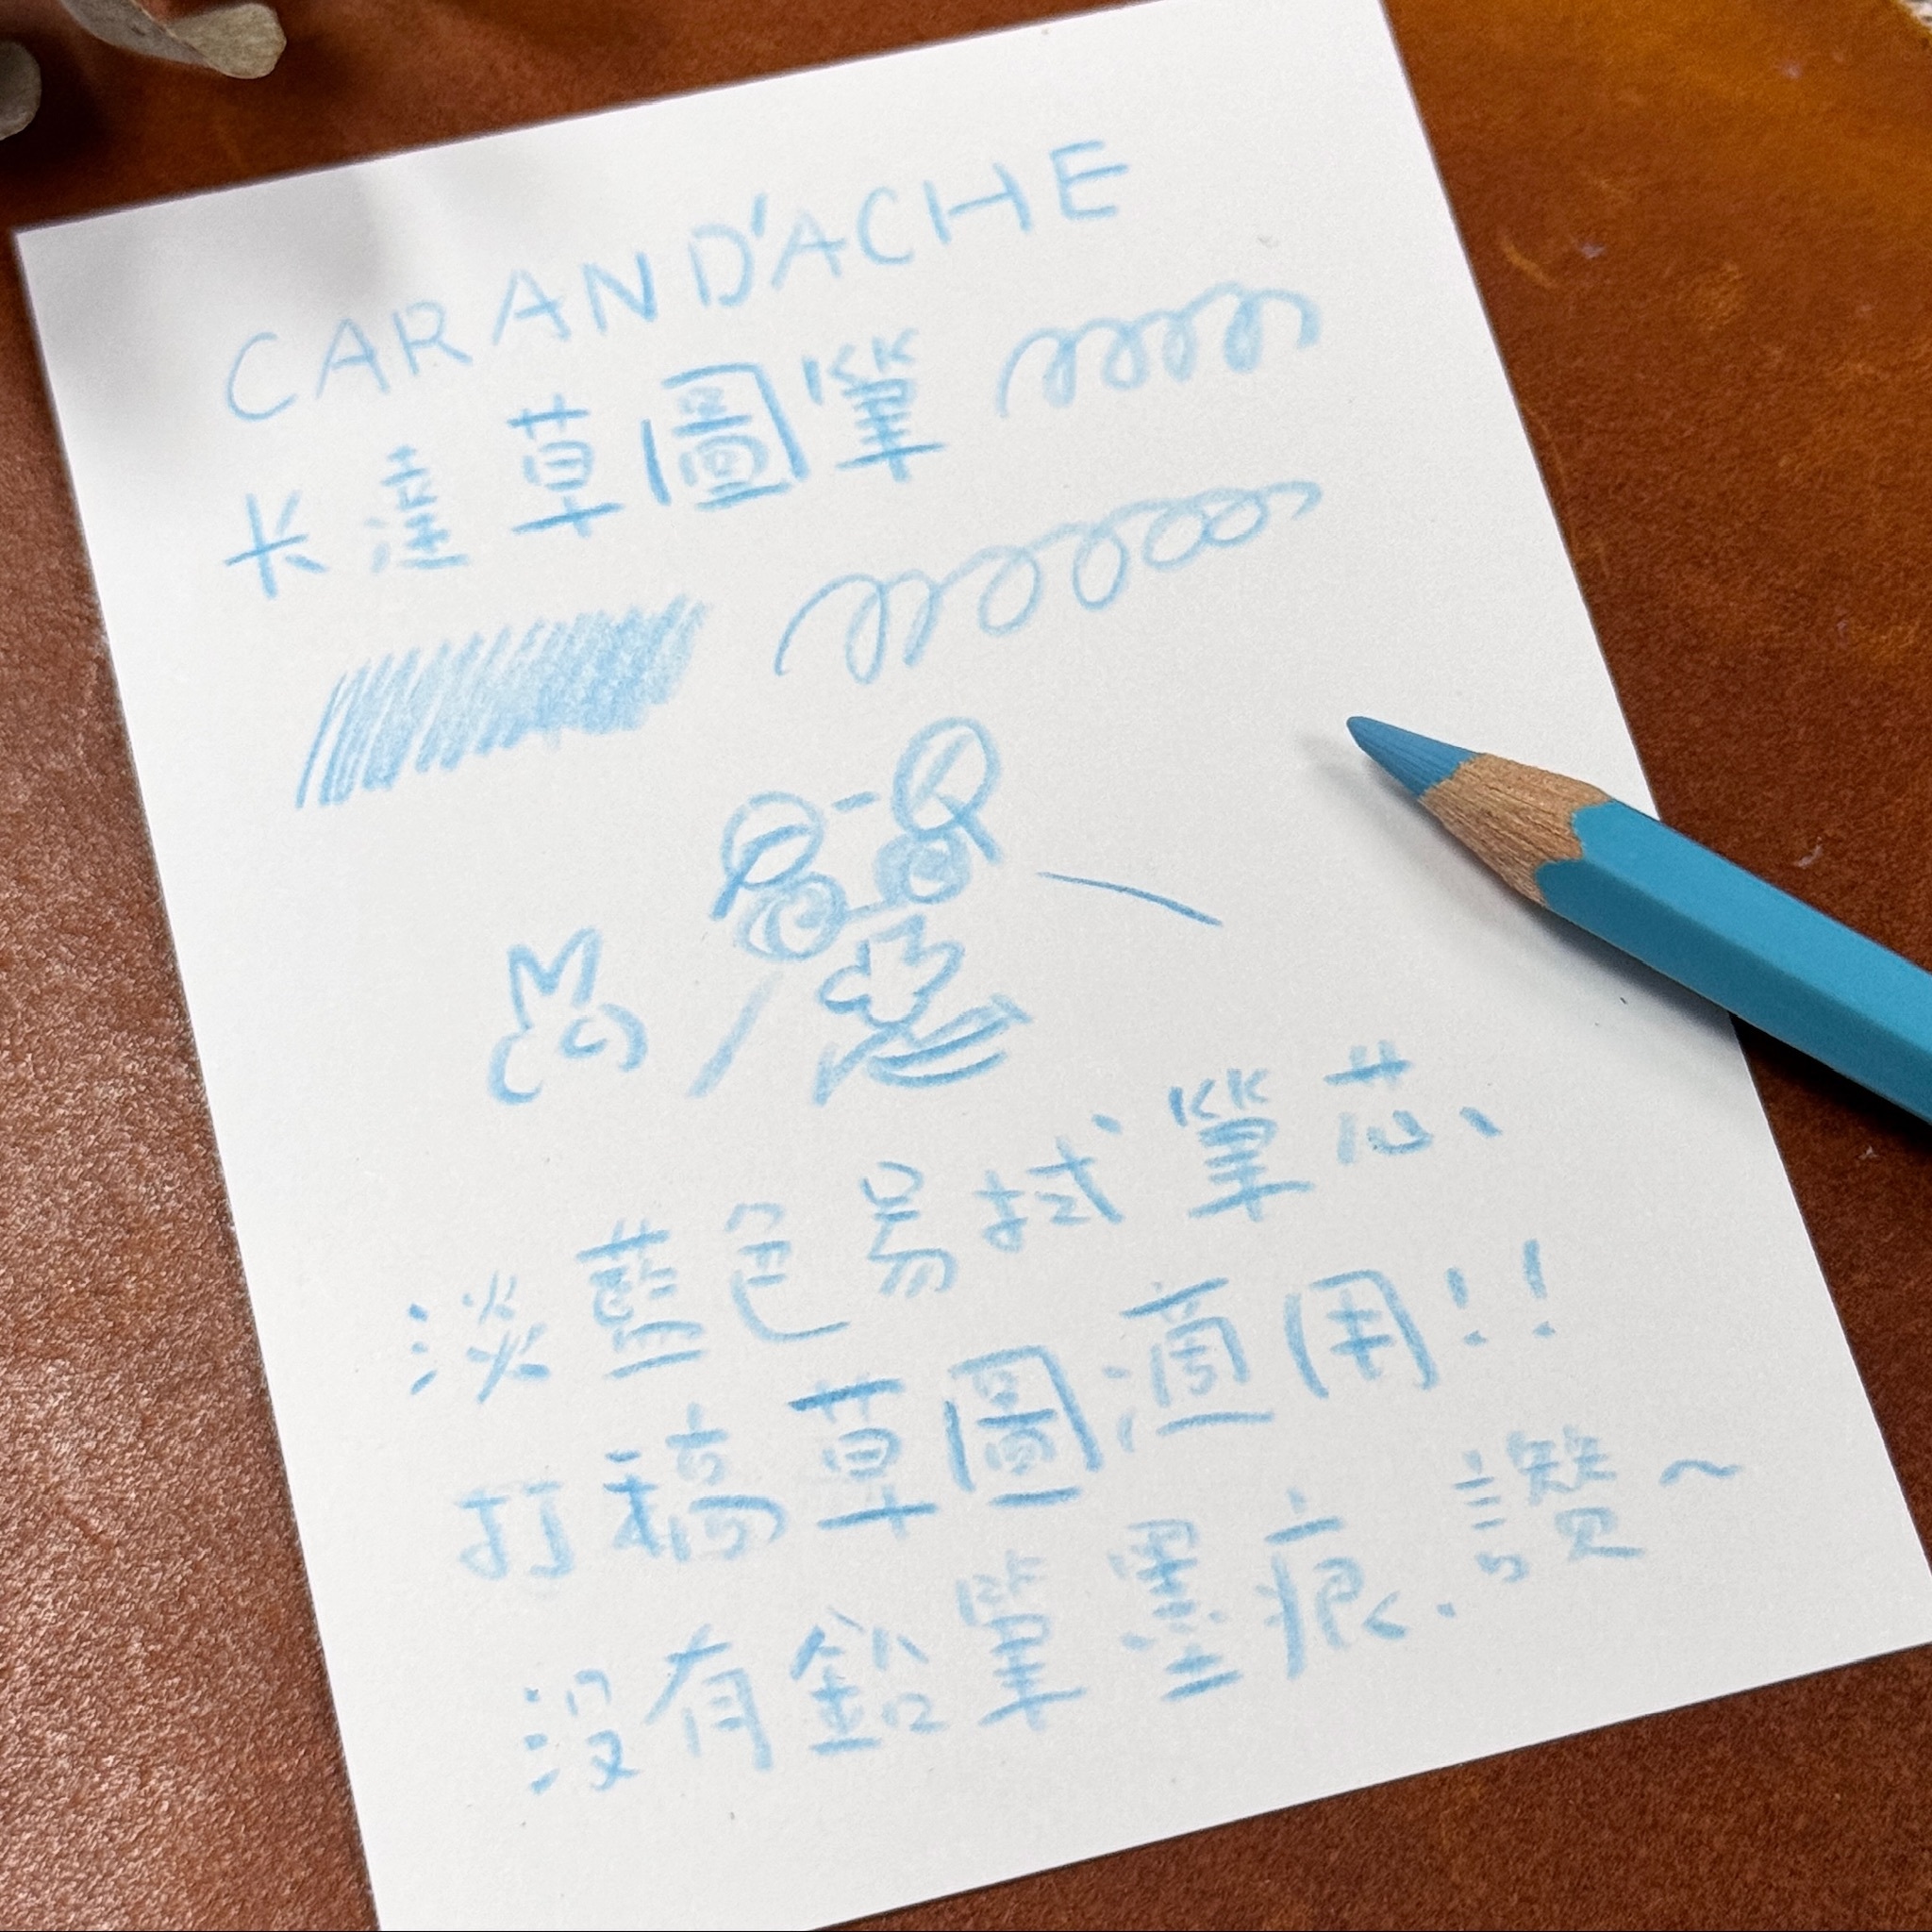 CARAND'ACHE
卡達草圖筆
淡藍色易拭筆芯、
打稿草圖適用!!
沒有鉛筆墨痕.讚~